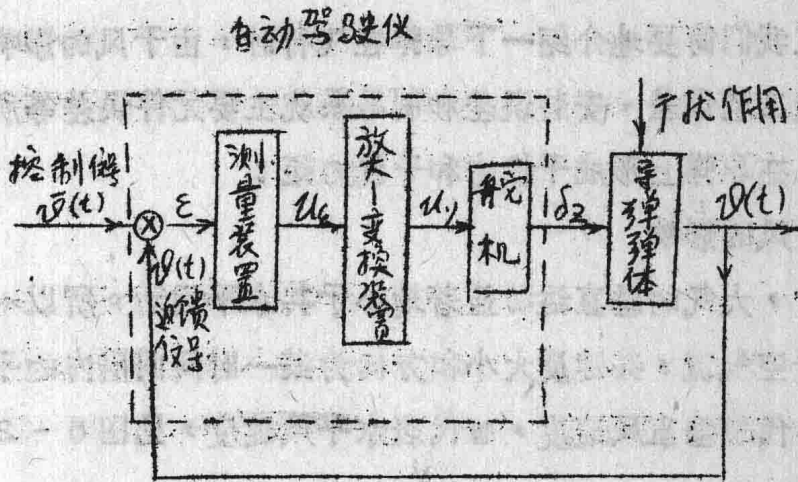 自动驾驶仪
干扰作用
控制信号
ϑ̄(t)
ε
测量装置
Uε
放大—变换装置
Uy
舵机
δz
导弹弹体
ϑ(t)
ϑ(t)
迫馈
信号